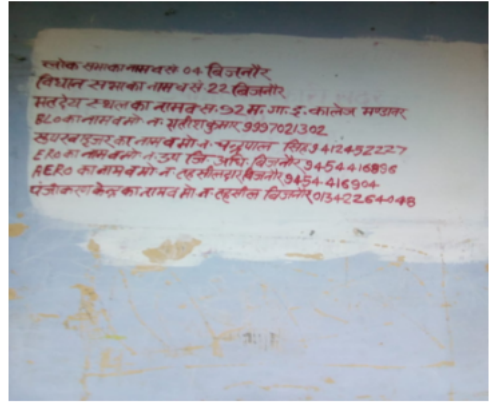 लोक सभा का नाम व सं. 04 बिजनौर
विधान सभा का नाम व सं. 22 बिजनौर
मतदेय स्थल का नाम व सं. 92 म. गा. इ. कालेज मण्डावर
BLO का नाम व मो. न. सतीश कुमार 9997021302
सुपरवाइजर का नाम व मो न. चन्द्रपाल सिंह 9412452227
ERO का नाम व मो न. उप जि. अधि. बिजनौर 9454416896
AERO का नाम व मो न. तहसीलदार बिजनौर 9454416904
पंजीकरण केन्द्र का नाम व मो न. तहसील बिजनौर 01342264048